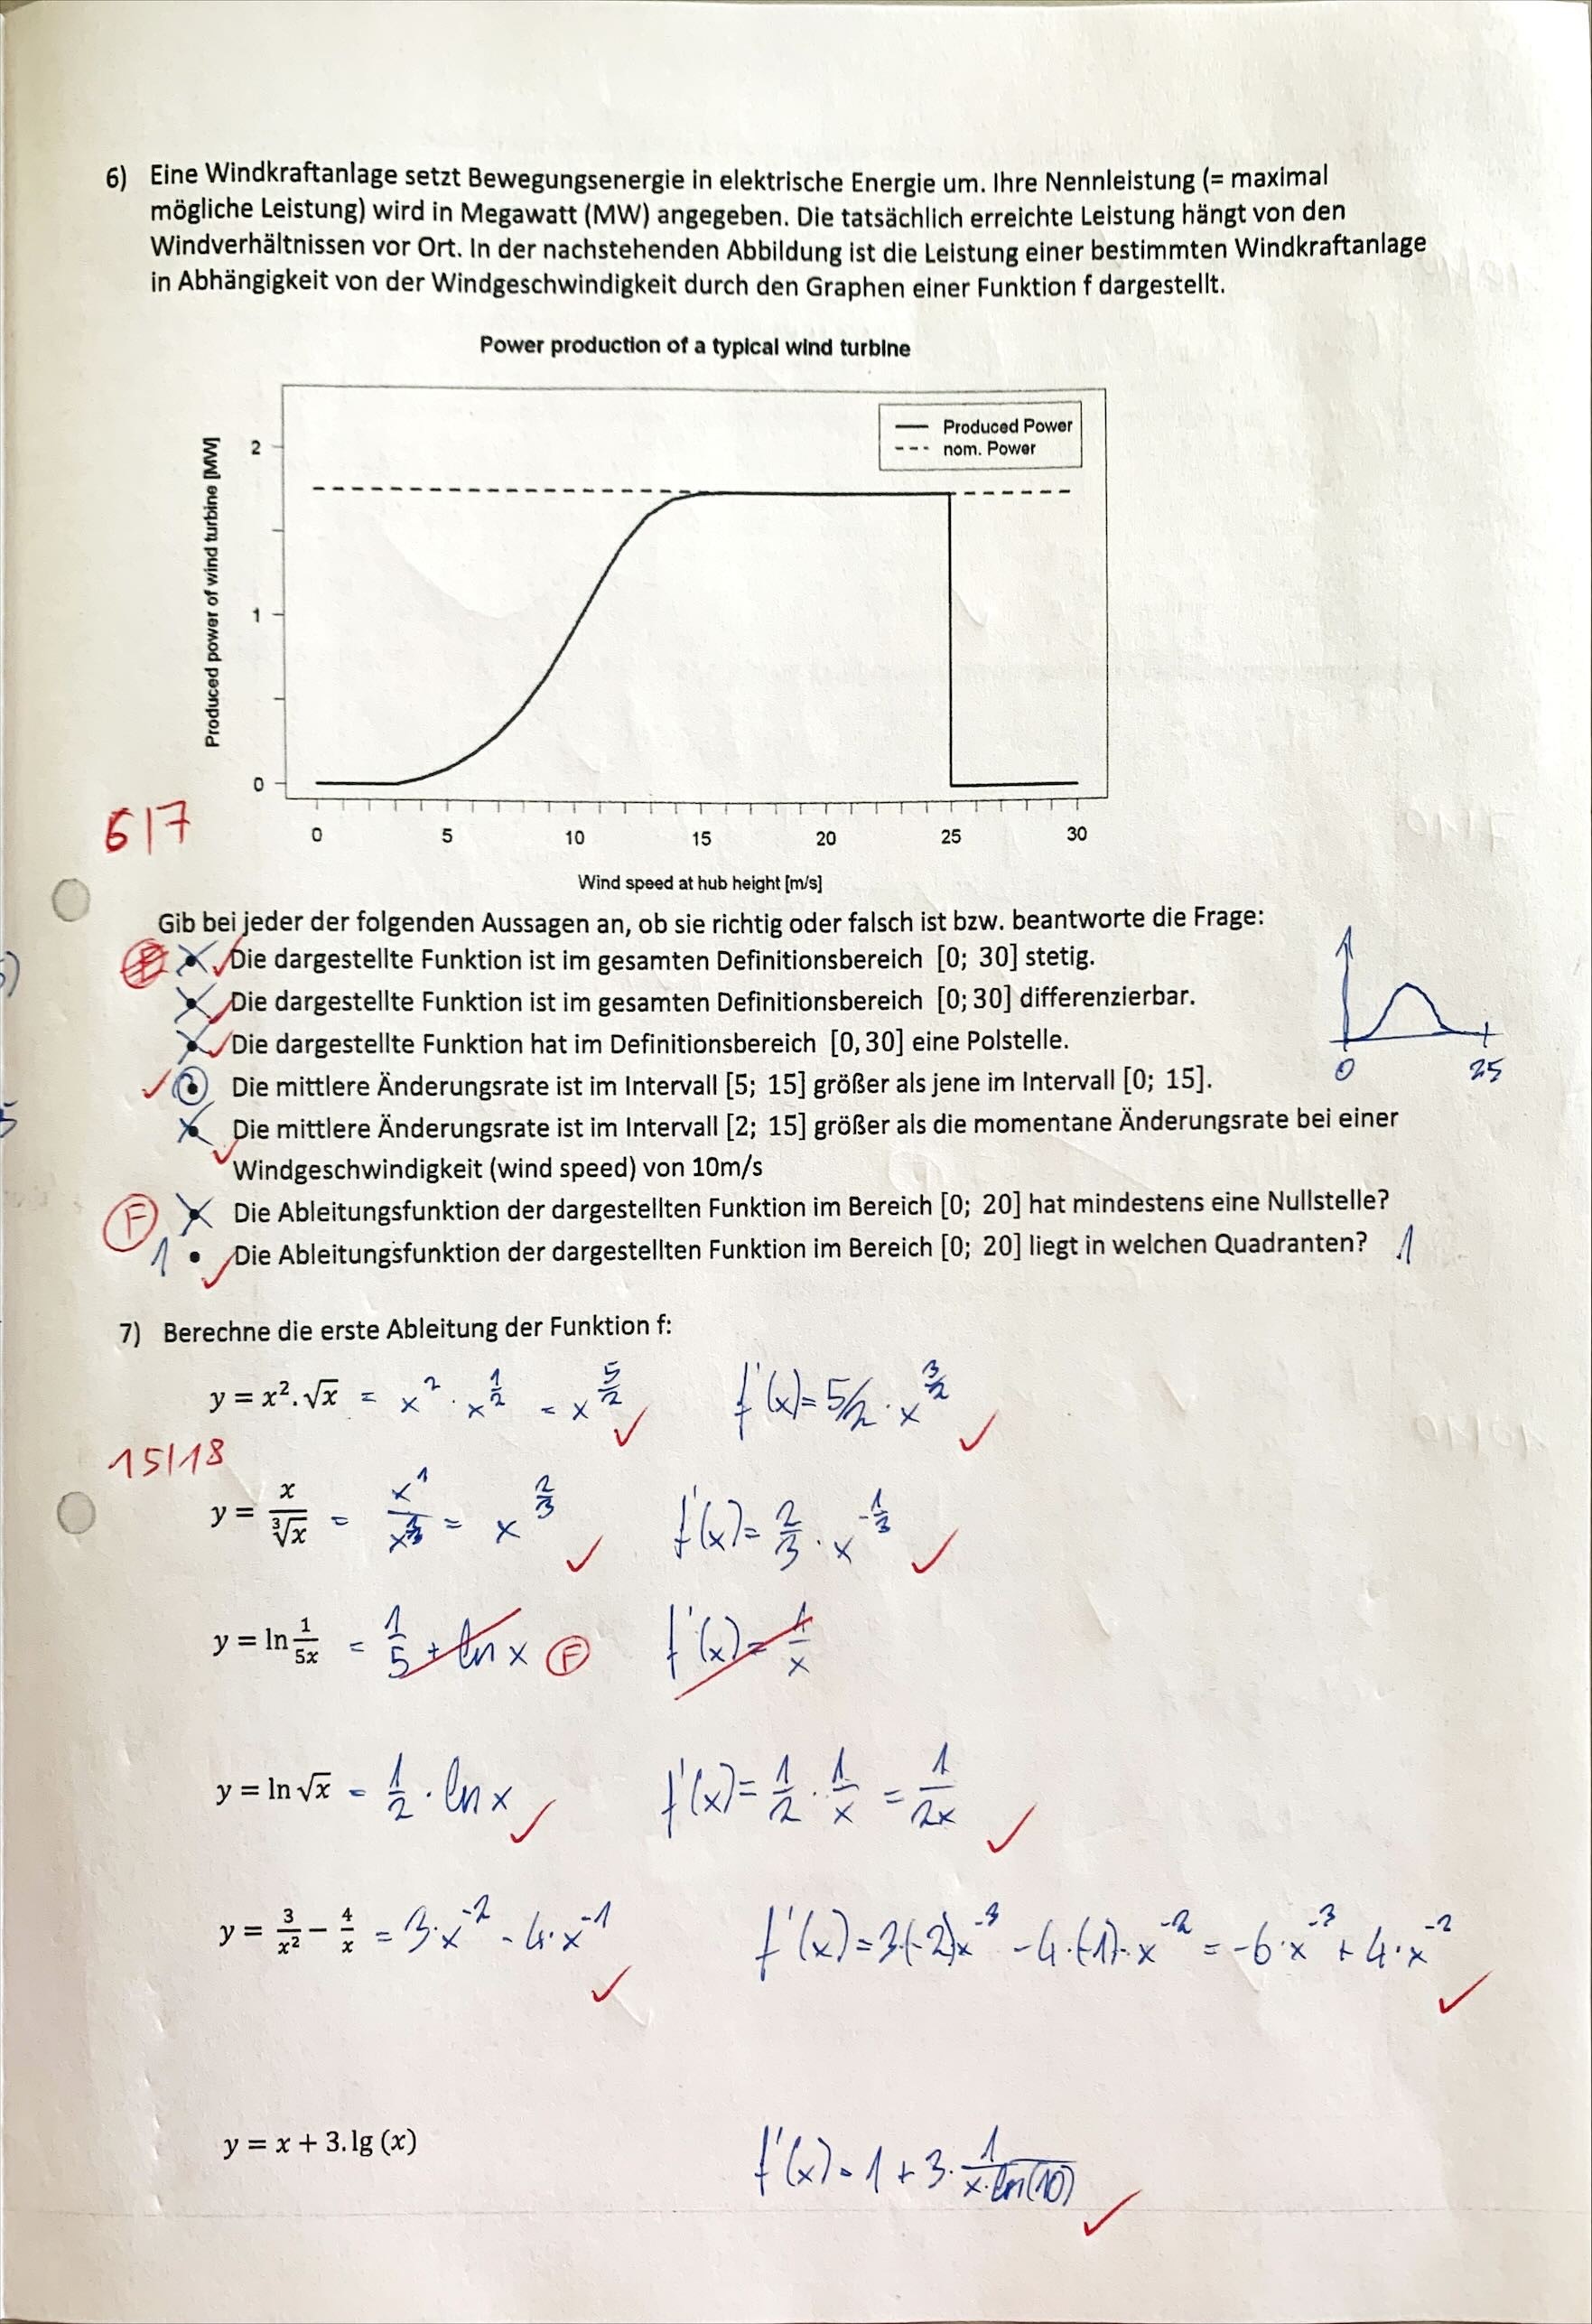 6) Eine Windkraftanlage setzt Bewegungsenergie in elektrische Energie um. Ihre Nennleistung (= maximal
mögliche Leistung) wird in Megawatt (MW) angegeben. Die tatsächlich erreichte Leistung hängt von den
Windverhältnissen vor Ort. In der nachstehenden Abbildung ist die Leistung einer bestimmten Windkraftanlage
in Abhängigkeit von der Windgeschwindigkeit durch den Graphen einer Funktion f dargestellt.
Power production of a typical wind turbine
Produced Power
nom. Power
Produced power of wind turbine [MW]
2
1
0
0 5 10 15 20 25 30
Wind speed at hub height [m/s]
6|7
Gib bei jeder der folgenden Aussagen an, ob sie richtig oder falsch ist bzw. beantworte die Frage:
Die dargestellte Funktion ist im gesamten Definitionsbereich [0; 30] stetig.
• Die dargestellte Funktion ist im gesamten Definitionsbereich [0; 30] differenzierbar.
• Die dargestellte Funktion hat im Definitionsbereich [0, 30] eine Polstelle.
• Die mittlere Änderungsrate ist im Intervall [5; 15] größer als jene im Intervall [0; 15].
• Die mittlere Änderungsrate ist im Intervall [2; 15] größer als die momentane Änderungsrate bei einer
Windgeschwindigkeit (wind speed) von 10m/s
F • Die Ableitungsfunktion der dargestellten Funktion im Bereich [0; 20] hat mindestens eine Nullstelle?
1 • Die Ableitungsfunktion der dargestellten Funktion im Bereich [0; 20] liegt in welchen Quadranten? 1
0 25
7) Berechne die erste Ableitung der Funktion f:
y = x². √x = x^2 · x^(1/2) = x^(5/2) f'(x) = 5/2 · x^(3/2)
15|18
y = x/∛x = x^1/x^(1/3) = x^(2/3) f'(x) = 2/3 · x^(-1/3)
y = ln 1/5x = 1/5 + ln x F f'(x) = 1/x
y = ln √x = 1/2 · ln x f'(x) = 1/2 · 1/x = 1/2x
y = 3/x² − 4/x = 3·x^-2 - 4·x^-1 f'(x) = 3·(-2)x^-3 - 4·(-1)·x^-2 = -6·x^-3 + 4·x^-2
y = x + 3. lg (x) f'(x) = 1 + 3· 1/x·ln(10)